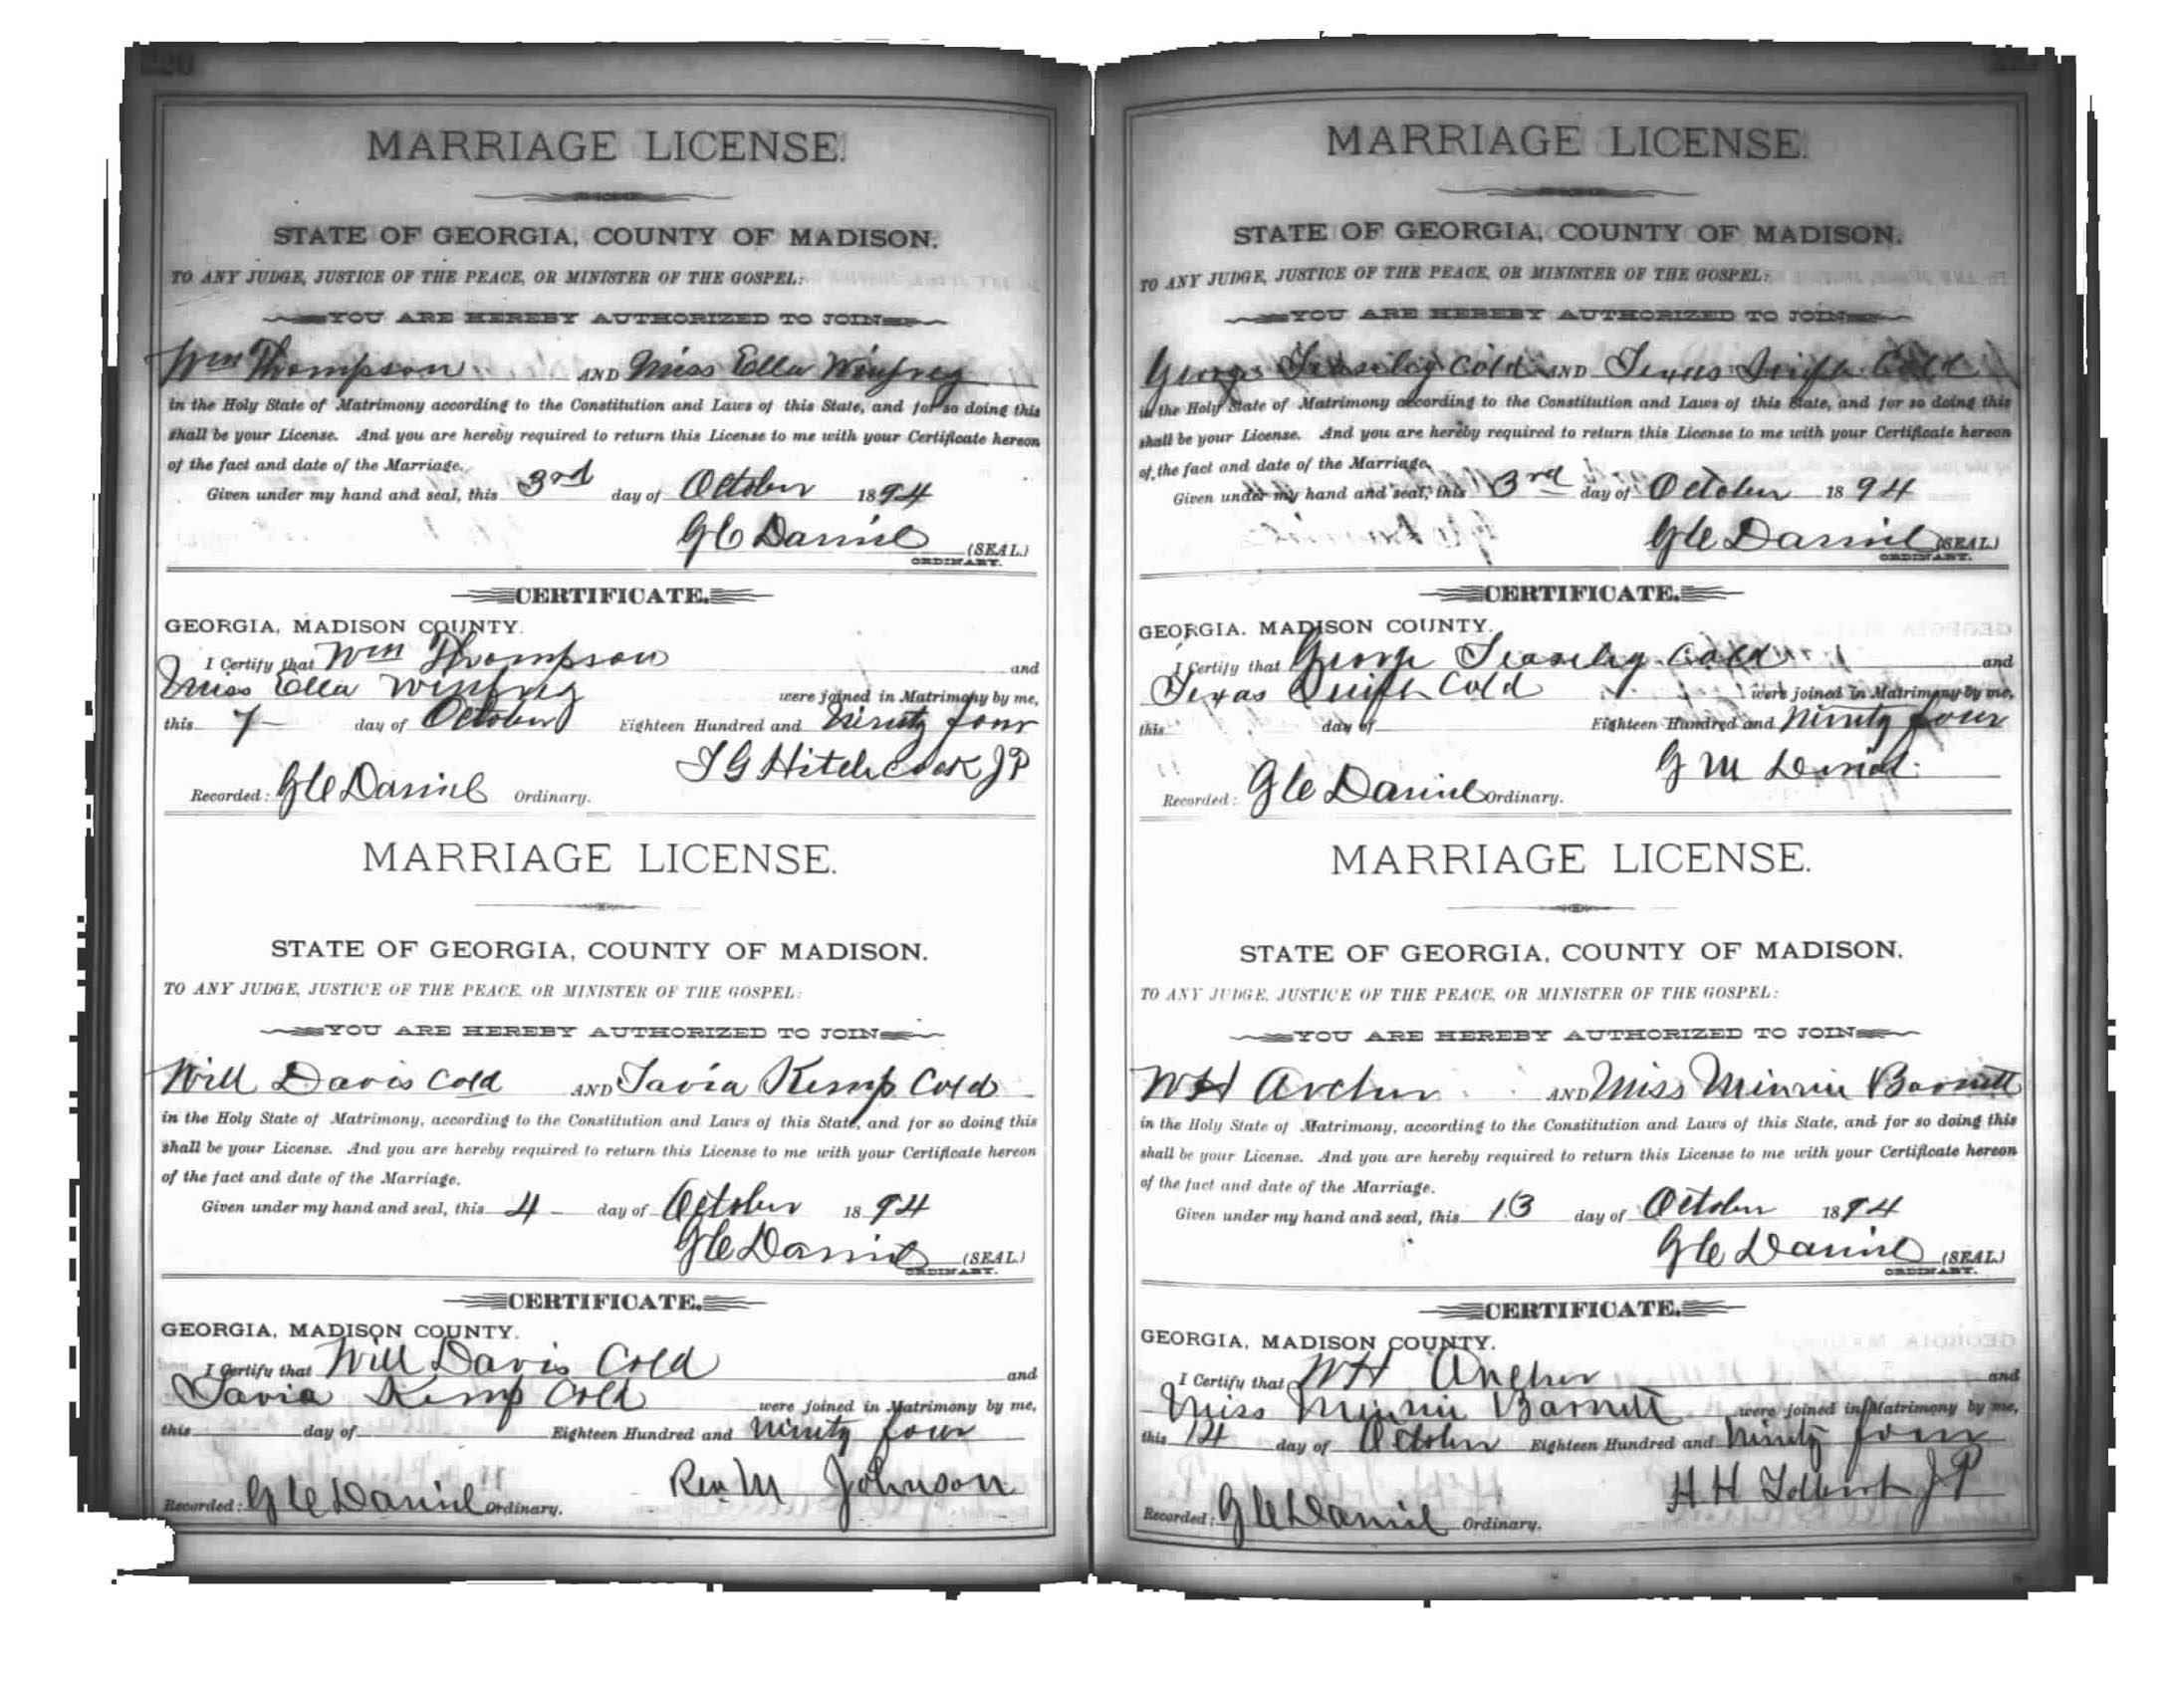 220
MARRIAGE LICENSE.
STATE OF GEORGIA, COUNTY OF MADISON.
TO ANY JUDGE, JUSTICE OF THE PEACE, OR MINISTER OF THE GOSPEL:
YOU ARE HEREBY AUTHORIZED TO JOIN
Wm Thompson AND Miss Ella Winfrey
in the Holy State of Matrimony according to the Constitution and Laws of this State, and for so doing this
shall be your License. And you are hereby required to return this License to me with your Certificate hereon
of the fact and date of the Marriage.
Given under my hand and seal, this 3rd day of October 1894
G C Daniel (SEAL.)
ORDINARY.
CERTIFICATE.
GEORGIA, MADISON COUNTY.
I Certify that Wm Thompson and
Miss Ella Winfrey were joined in Matrimony by me,
this 7 day of October Eighteen Hundred and Ninety four
T G Hitchcock J P
Recorded: G C Daniel Ordinary.
MARRIAGE LICENSE.
STATE OF GEORGIA, COUNTY OF MADISON.
TO ANY JUDGE, JUSTICE OF THE PEACE, OR MINISTER OF THE GOSPEL:
YOU ARE HEREBY AUTHORIZED TO JOIN
Will Davis Cold AND Savia Kemp Cold
in the Holy State of Matrimony, according to the Constitution and Laws of this State, and for so doing this
shall be your License. And you are hereby required to return this License to me with your Certificate hereon
of the fact and date of the Marriage.
Given under my hand and seal, this 4 day of October 1894
G C Daniel (SEAL.)
ORDINARY.
CERTIFICATE.
GEORGIA, MADISON COUNTY.
I Certify that Will Davis Cold and
Savia Kemp Cold were joined in Matrimony by me,
this day of Eighteen Hundred and Ninety four
Rev M Johnson
Recorded: G C Daniel Ordinary.
MARRIAGE LICENSE.
STATE OF GEORGIA, COUNTY OF MADISON.
TO ANY JUDGE, JUSTICE OF THE PEACE, OR MINISTER OF THE GOSPEL:
YOU ARE HEREBY AUTHORIZED TO JOIN
George Teasley Cold AND Texas Cold
in the Holy State of Matrimony according to the Constitution and Laws of this State, and for so doing this
shall be your License. And you are hereby required to return this License to me with your Certificate hereon
of the fact and date of the Marriage.
Given under my hand and seal, this 3rd day of October 1894
G C Daniel (SEAL.)
ORDINARY.
CERTIFICATE.
GEORGIA. MADISON COUNTY.
I Certify that George Teasley Cold and
Texas Cold were joined in Matrimony by me,
this day of Eighteen Hundred and Ninety four
G M Daniel
Recorded: G C Daniel Ordinary.
MARRIAGE LICENSE.
STATE OF GEORGIA, COUNTY OF MADISON.
TO ANY JUDGE, JUSTICE OF THE PEACE, OR MINISTER OF THE GOSPEL:
YOU ARE HEREBY AUTHORIZED TO JOIN
W H Archer AND Miss Minnie Barnett
in the Holy State of Matrimony, according to the Constitution and Laws of this State, and for so doing this
shall be your License. And you are hereby required to return this License to me with your Certificate hereon
of the fact and date of the Marriage.
Given under my hand and seal, this 13 day of October 1894
G C Daniel (SEAL.)
ORDINARY.
CERTIFICATE.
GEORGIA, MADISON COUNTY.
I Certify that W H Archer and
Miss Minnie Barnett were joined in Matrimony by me,
this 14 day of October Eighteen Hundred and Ninety four
H H Tolbert J P
Recorded: G C Daniel Ordinary.